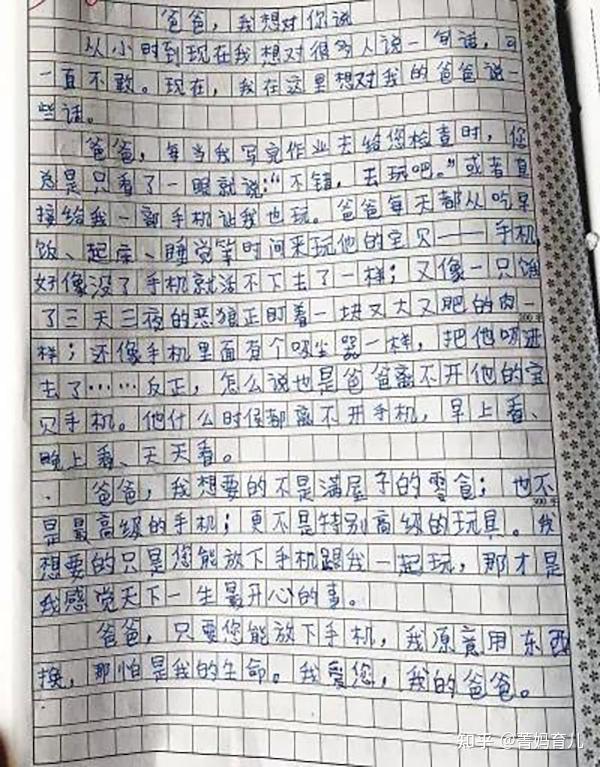 爸爸，我想对你说
从小时到现在我想对很多人说一句话，可
一直不敢。现在，我在这里想对我的爸爸说一
些话。
爸爸，每当我写完作业去给您检查时，您
总是只看了一眼就说：“不错，去玩吧。”或者直
接给我一部手机让我也玩。爸爸每天都从吃早
饭、起床、睡觉等时间来玩他的宝贝——手机，
好像没了手机就活不下去了一样；又像一只饿
了三天三夜的恶狼正盯着一块又大又肥的肉一
样；还像手机里面有个吸尘器一样，把他吸进
去了……反正，怎么说也是爸爸离不开他的宝
贝手机。他什么时候都离不开手机，早上看、
晚上看、天天看。
爸爸，我想要的不是满屋子的零食；也不
是最高级的手机；更不是特别高级的玩具。我
想要的只是您能放下手机跟我一起玩，那才是
我感觉天下一生最开心的事。
爸爸，只要您能放下手机，我原意用东西
换，那怕是我的生命。我爱您，我的爸爸。
知乎 @菁妈育儿